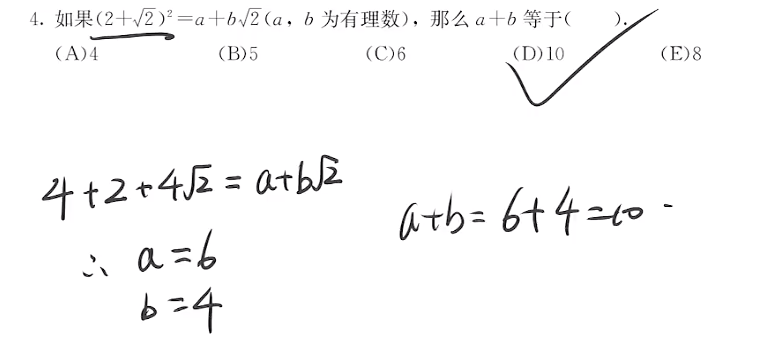 4. 如果(2+√2)²=a+b√2(a，b 为有理数)，那么 a+b 等于(　　).
(A)4　(B)5　(C)6　(D)10　(E)8
4+2+4√2=a+b√2
a+b=6+4=10
∴ a=6
b=4